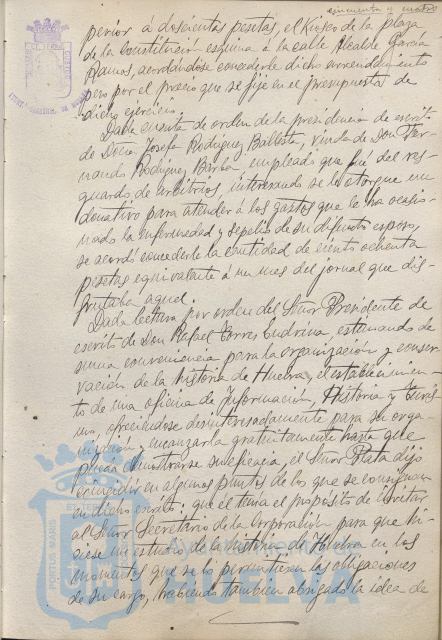 cincuenta y cuatro
perior á doscientas pesetas, el Kiosco de la plaza
de la Constitución esquina á la calle Alcalde García
Ramos, acordándose concederle dicho arrendamiento
pero por el precio que se fije en el presupuesto de
dicho ejercicio.
Dada cuenta de orden de la presidencia de escrito
de Doña Josefa Rodríguez Ballesta, viuda de Don Fer-
nando Rodríguez Barba empleado que fué del res-
guardo de arbitrios, interesando se le otorgue un
donativo para atender á los gastos que le ha ocasio-
nado la enfermedad y sepelio de su difunto esposo,
se acordó concederle la cantidad de ciento ochenta
pesetas equivalente á un mes del jornal que dis-
frutaba aquel.
Dada lectura por orden del Señor Presidente de
escrito de Don Rafael Torres Endrina, estimando de
suma conveniencia para la organización y conser-
vación de la historia de Huelva, el establecimien-
to de una oficina de Información, Historia y Turis-
mo, ofreciéndose desinteresadamente para su orga-
nización, y encauzarla gratuitamente hasta que
pueda demostrarse su eficacia, el Señor Plata dijo
coincidir en algunos puntos de los que se consignan
en dicho escrito, que él tenía el propósito de invitar
al Señor Secretario de la Corporación para que hi-
ciese un estudio de la historia de Huelva en los
momentos que se lo permitiesen las obligaciones
de su cargo, habiendo también abrigado la idea de
PORTUS MARIS
Ayuntamiento de
HUELVA